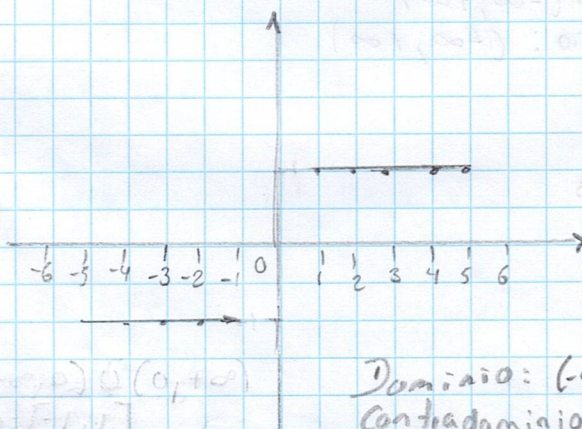 -6 -5 -4 -3 -2 -1 0 1 2 3 4 5 6
Dominio: (-
Contradominio